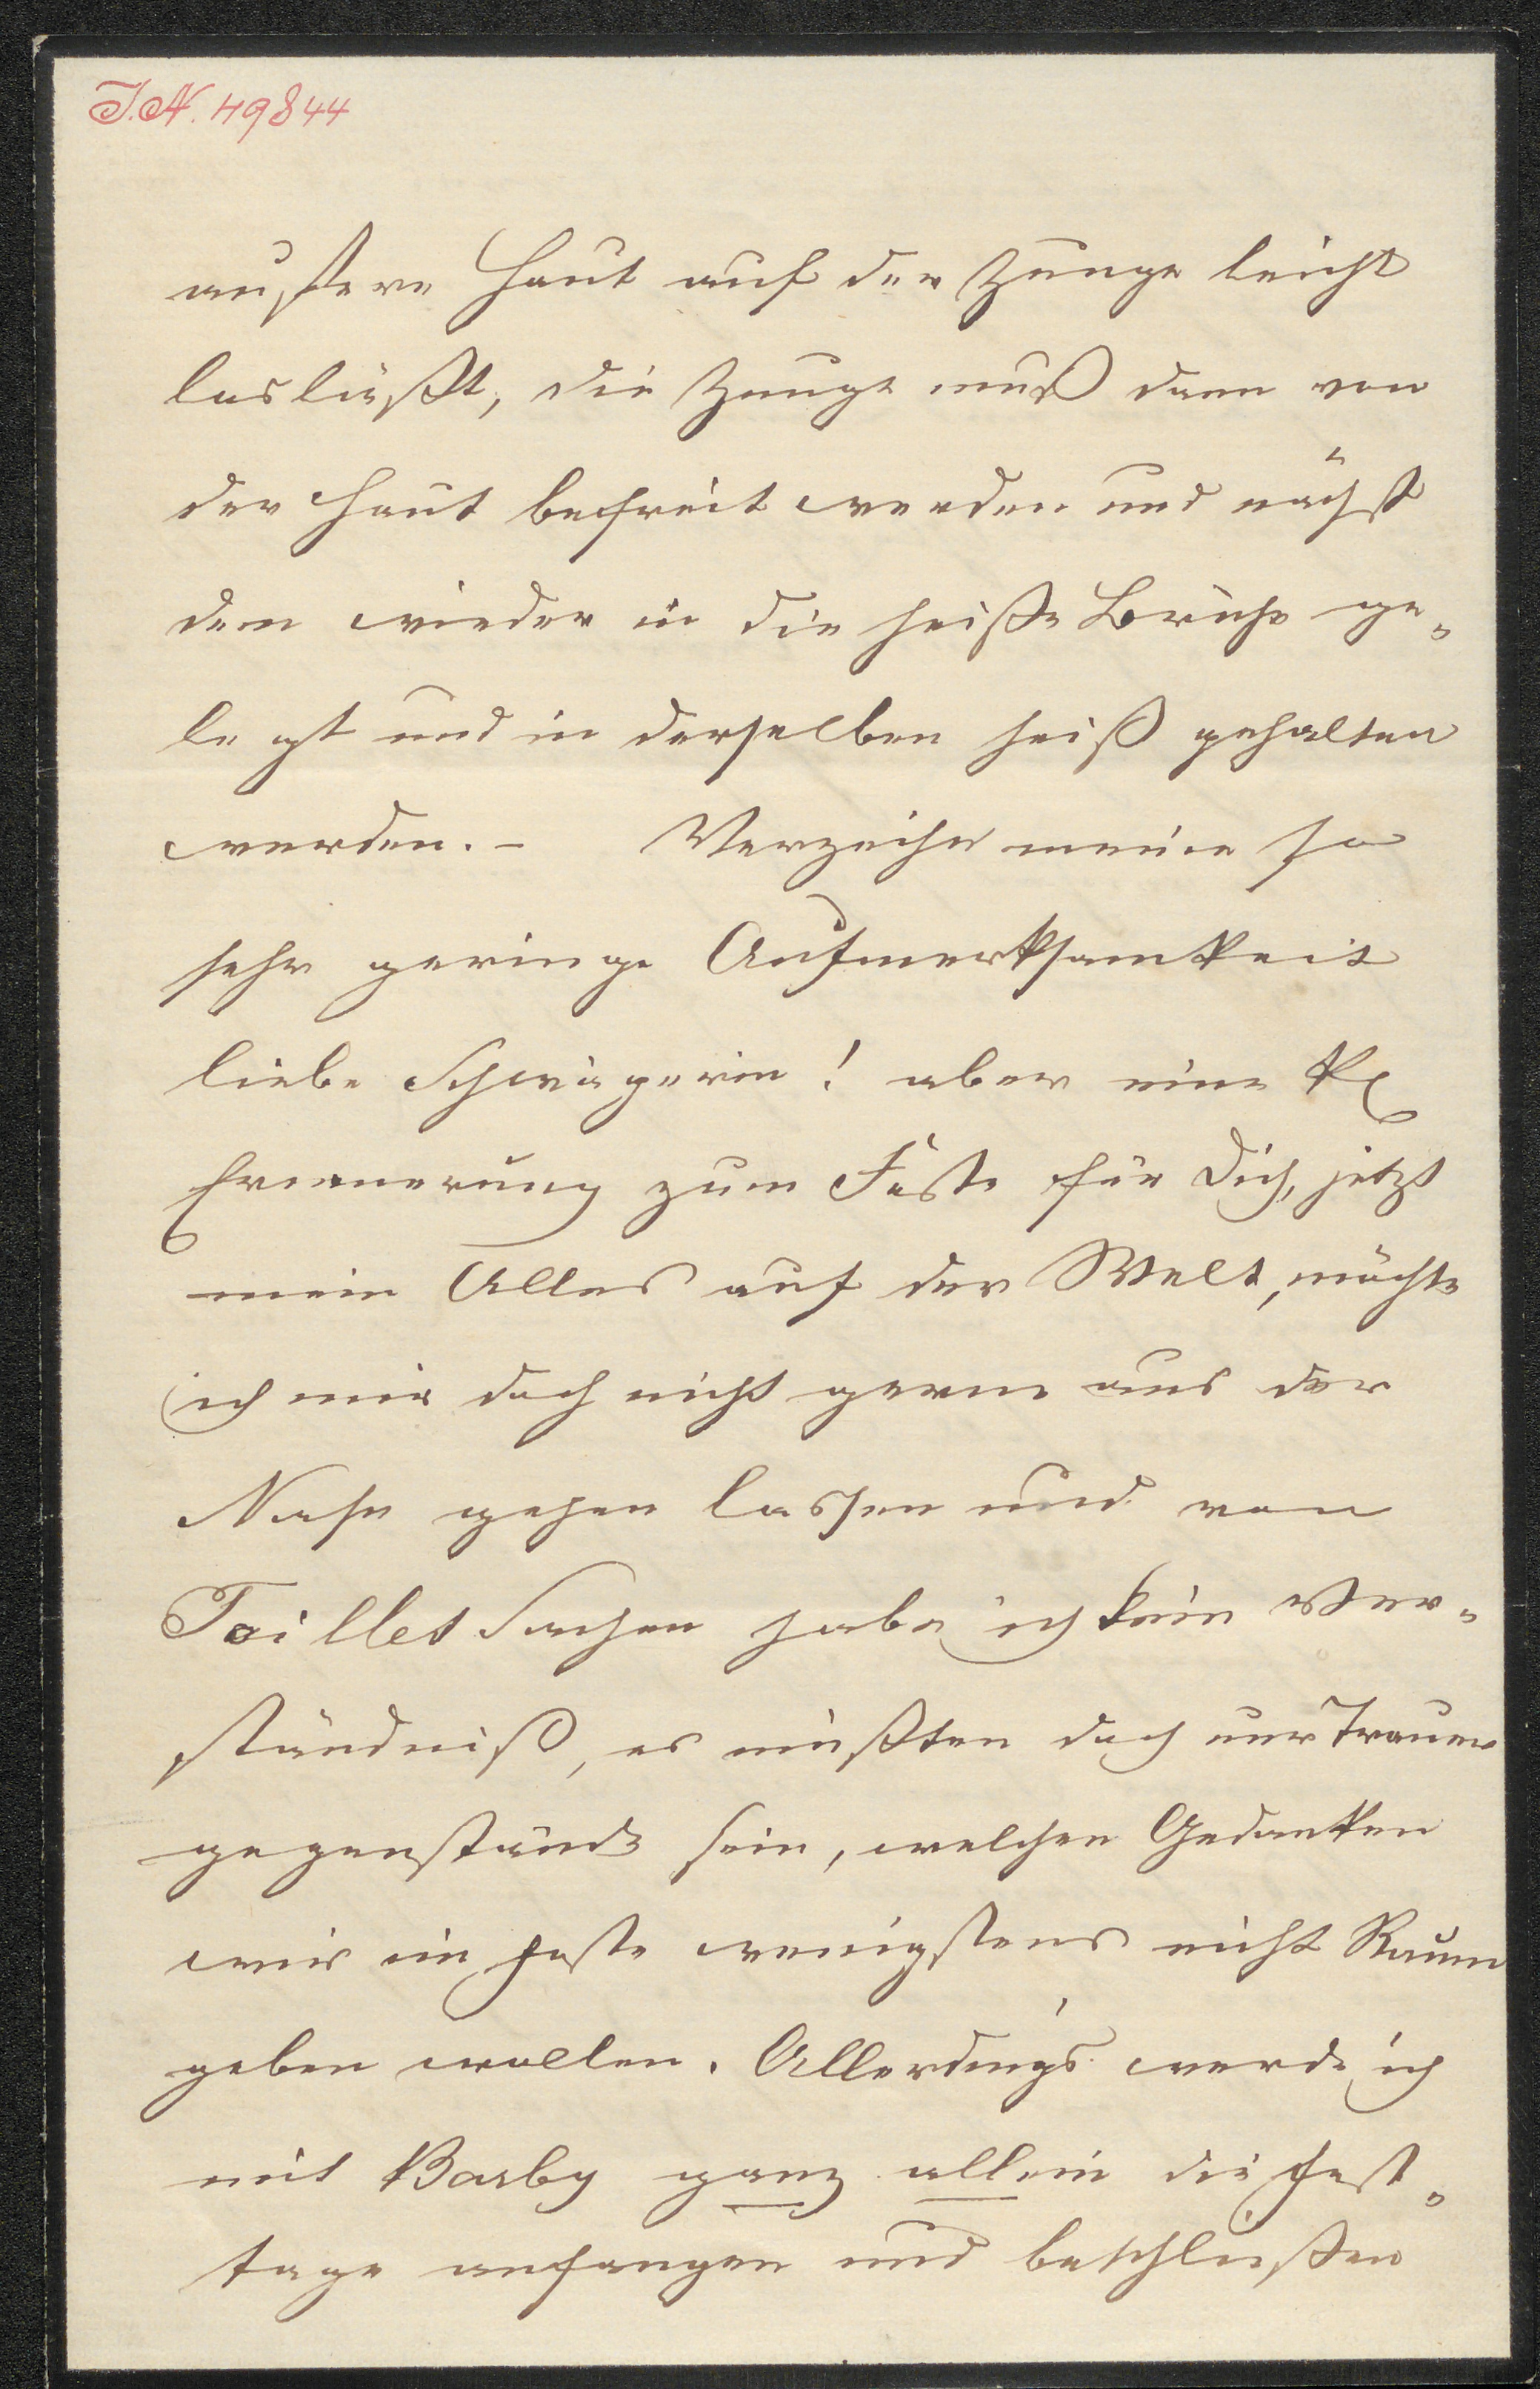 I.N. 49844
äußere Haut auf der Zunge leicht
losläßt, die Zunge muß dann von
der Haut befreit werden und nächst
dem wieder in die heiße Brühe ge-
legt und in derselben heiß gehalten
werden. – Verzeihe meine so
sehr geringe Aufmerksamkeit
liebe Schwägerin! aber eine kl
Erinnerung zum Feste für Dich, jetzt
mein Alles auf der Welt, möchte
ich mir doch nicht gerne aus der
Nase gehen lassen und von
Toillet Sachen habe ich kein Ver-
ständniß, es müßten doch nur Trauer
gegenstände sein, welchen Gedanken
wir im Feste wenigstens nicht Raum
geben wollen. Allerdings werde ich
mit Barby ganz allein die Fest-
tage anfangen und beschließen